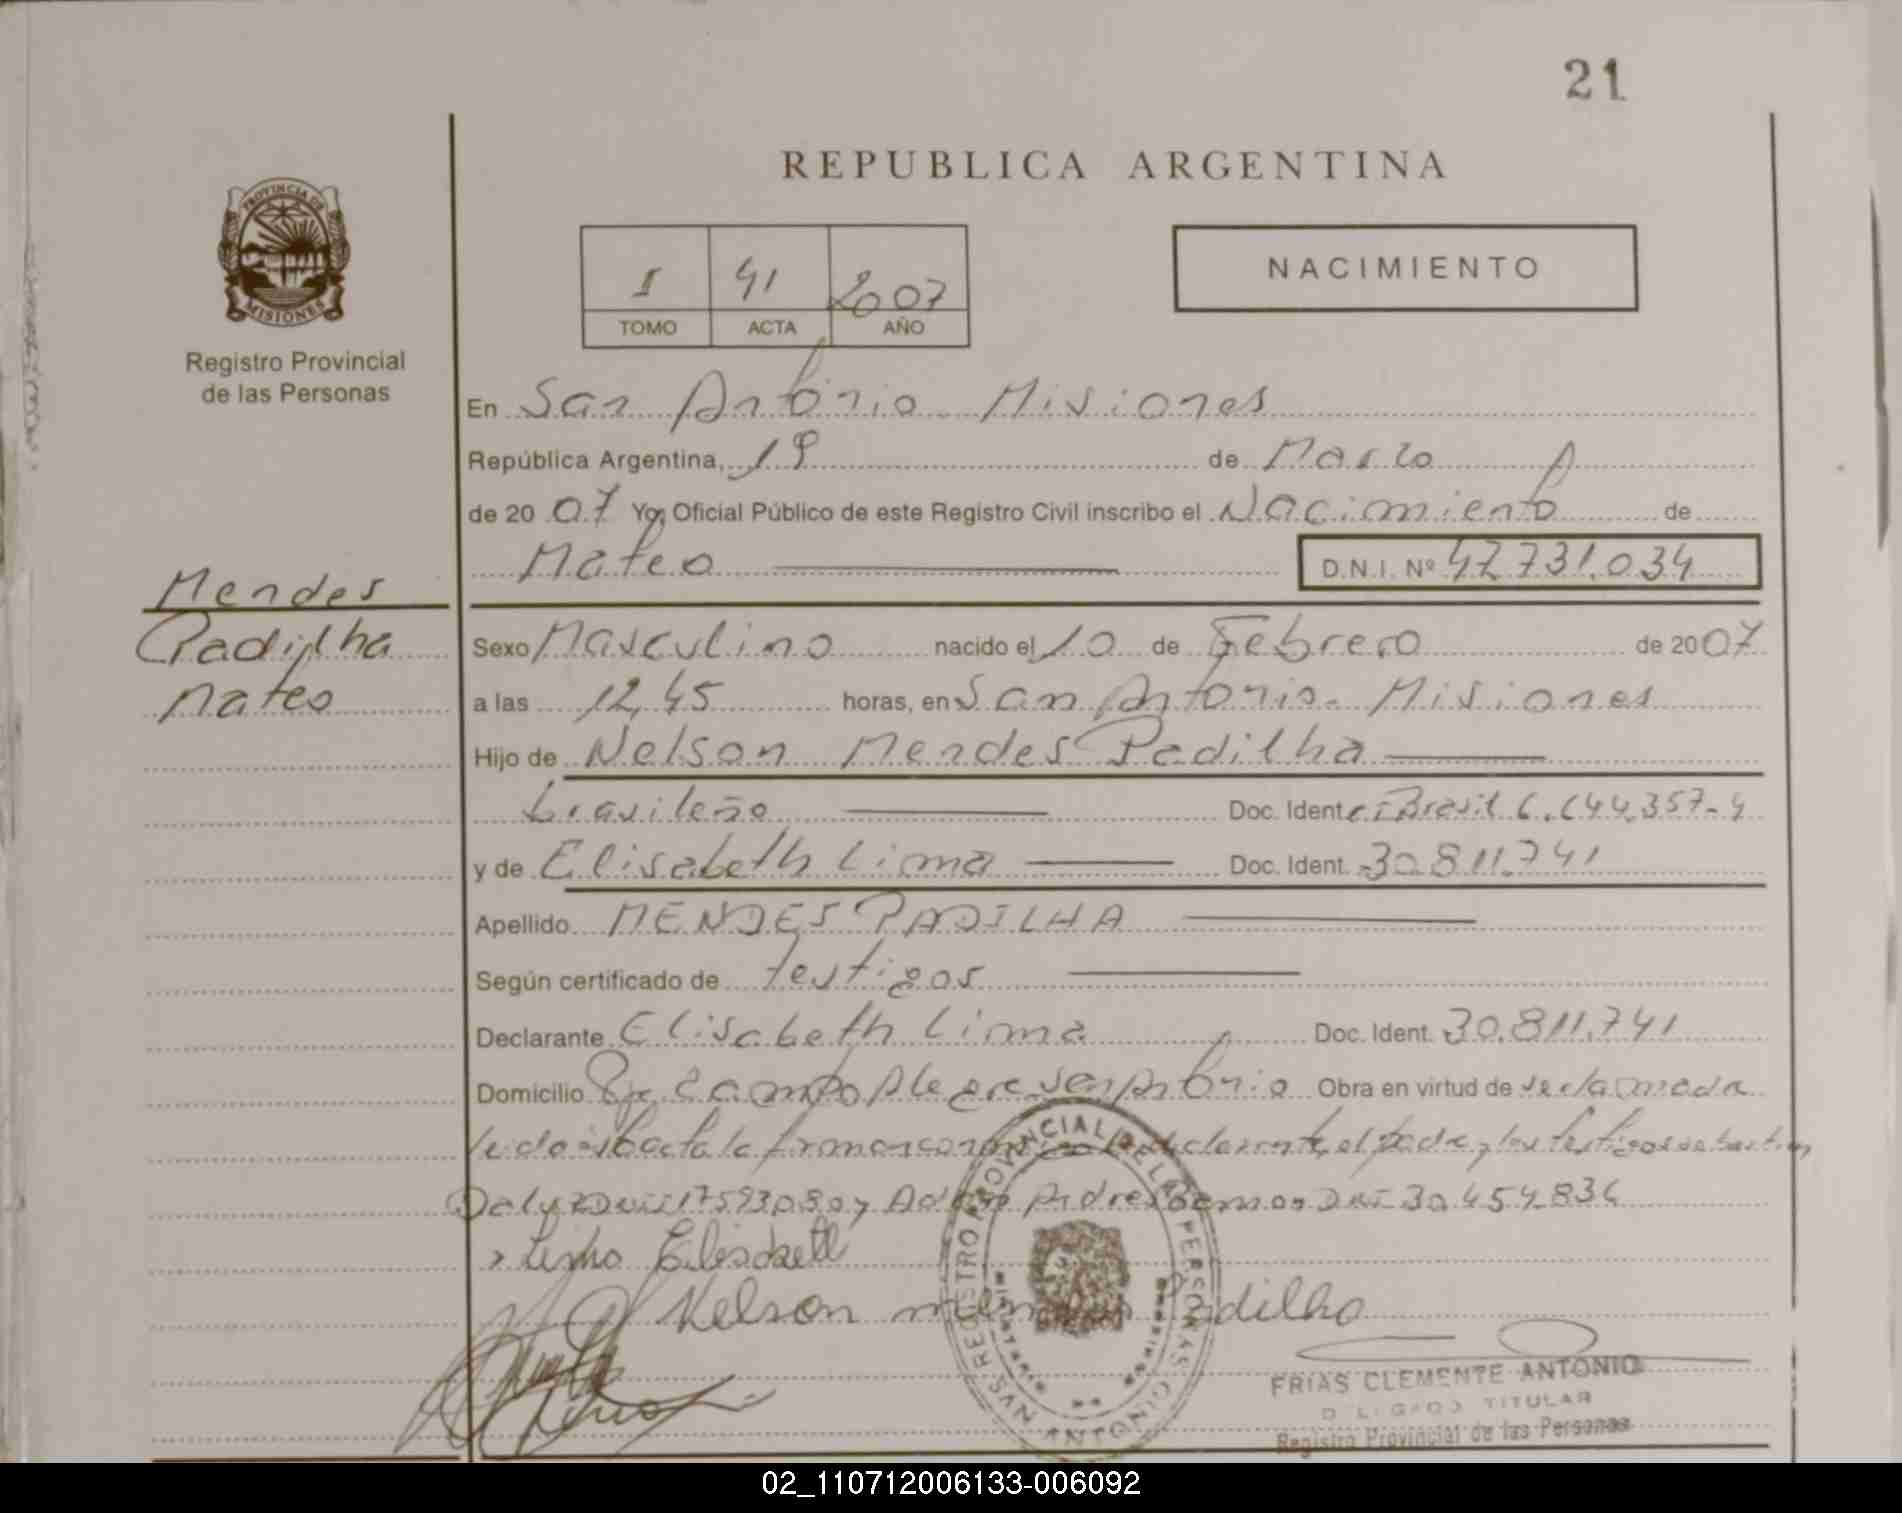 21
REPUBLICA ARGENTINA
PROVINCIA DE
MISIONES
Registro Provincial
de las Personas
I 41 2007
TOMO ACTA AÑO
NACIMIENTO
En San Antonio Misiones
República Argentina, 19 de Marzo
de 2007 Yo, Oficial Público de este Registro Civil inscribo el Nacimiento de
Mateo D.N.I. Nº 47.731.034
Mendes
Padilha
Mateo
Sexo Masculino nacido el 10 de Febrero de 2007
a las 12,45 horas, en San Antonio - Misiones
Hijo de Nelson Mendes Padilha
brasileño Doc. Ident. Brasil
y de Elisabeth Lima Doc. Ident. 30.811.741
Apellido MENDES PADILHA
Según certificado de testigos
Declarante Elisabeth Lima Doc. Ident. 30.811.741
Domicilio Campo Alegre San Antonio Obra en virtud de
leido el acta la firman el padre y los testigos
Lima Elisabeth
Nelson Padilha
REGISTRO PROVINCIAL DE LAS PERSONAS
FRIAS CLEMENTE ANTONIO
DELEGADO TITULAR
Registro Provincial de las Personas
02_110712006133-006092